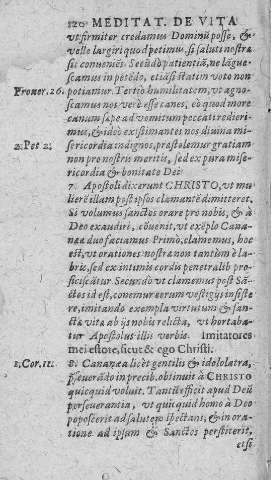 120 MEDITAT. DE VITA
vt firmiter credamus Dominũ posse, &
velle largiri quod petimus, si saluti nostræ
sit conueniẽs. Secũdò patientiã, ne lãgue-
scamus in petẽdo, etiã si statim voto non
Prouer. 26. potiamur. Tertiò humilitatem, vt agno-
scamus nos verè esse canes, eò quod more
canum sæpe ad vomitum peccati redieri-
mus, & ideò existimantes nos diuina mi-
2. Pet 2. sericordia indignos, præstolemur gratiam
non pro nostris meritis, sed ex pura mise-
ricordia & bonitate Dei.
7. Apostoli dixerunt CHRISTO, vt mu-
lierẽ illam post ipsos clamantẽ dimitteret.
Si volumus sanctos orare pro nobis, & à
Deo exaudiri, cõuenit, vt exẽplo Cana-
næa duo faciamus Primò, clamemus, hoc
est, vt orationes nostræ non tantùm è la-
bris, sed ex intimis cordis penetralib. pro-
ficiscãtur Secundò vt clamemus post Sã-
ctos id est, conemur eorum vestigijs insiste-
re, imitando exempla virtutum & san-
ctæ vitæ ab ijs nobis relicta, vt hortaba-
tur Apostolus illis verbis. Imitatores
mei estote, sicut & ego Christi.
1. Cor. 11. 8. Cananæa licèt gentilis & idololatra,
perseuerãdo in precib. obtinuit à CHRISTO
quicquid voluit. Tanti efficit apud Deũ
perseuerantia, vt quicquid homo à Deo
poposcerit ad salutem spectans, & in ora-
tione ad ipsum & Sanctos perstiterit,
etsi